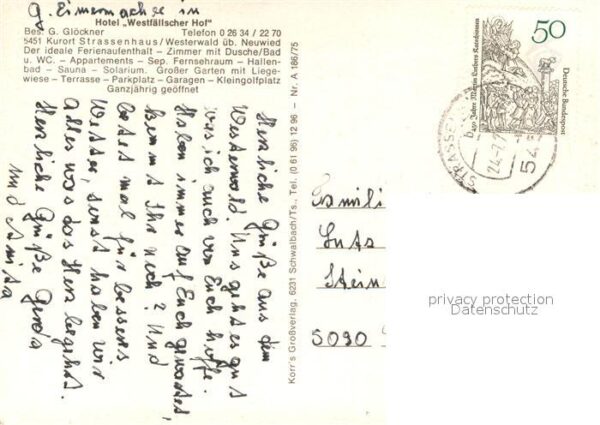 G. Eimermacher in
Hotel „Westfälischer Hof"
Bes. G. Glöckner Telefon 0 26 34 / 22 70
5451 Kurort Strassenhaus/Westerwald üb. Neuwied
Der ideale Ferienaufenthalt – Zimmer mit Dusche/Bad
u. WC. – Appartements – Sep. Fernsehraum – Hallen-
bad – Sauna – Solarium. Großer Garten mit Liege-
wiese – Terrasse – Parkplatz – Garagen – Kleingolfplatz
Ganzjährig geöffnet
Herzliche Grüße aus dem
Westerwald. Uns geht es gut
was ich auch von Euch hoffe.
Haben immer auf Euch gewartet,
kommt Ihr noch? Und
betet mal für besseres
Wetter, sonst haben wir
alles was das Herz begehrt.
Herzliche Grüße Gerda
und Anita
Korr's Großverlag, 6231 Schwalbach/Ts., Tel. (0 61 96) 12 96 – Nr. A 186/75
50
450 Jahre Martin Luthers Katechismus
Deutsche Bundespost
STRASSEN
24.7.
545
b
Familie
Lutz
Stein
5090
privacy protection
Datenschutz